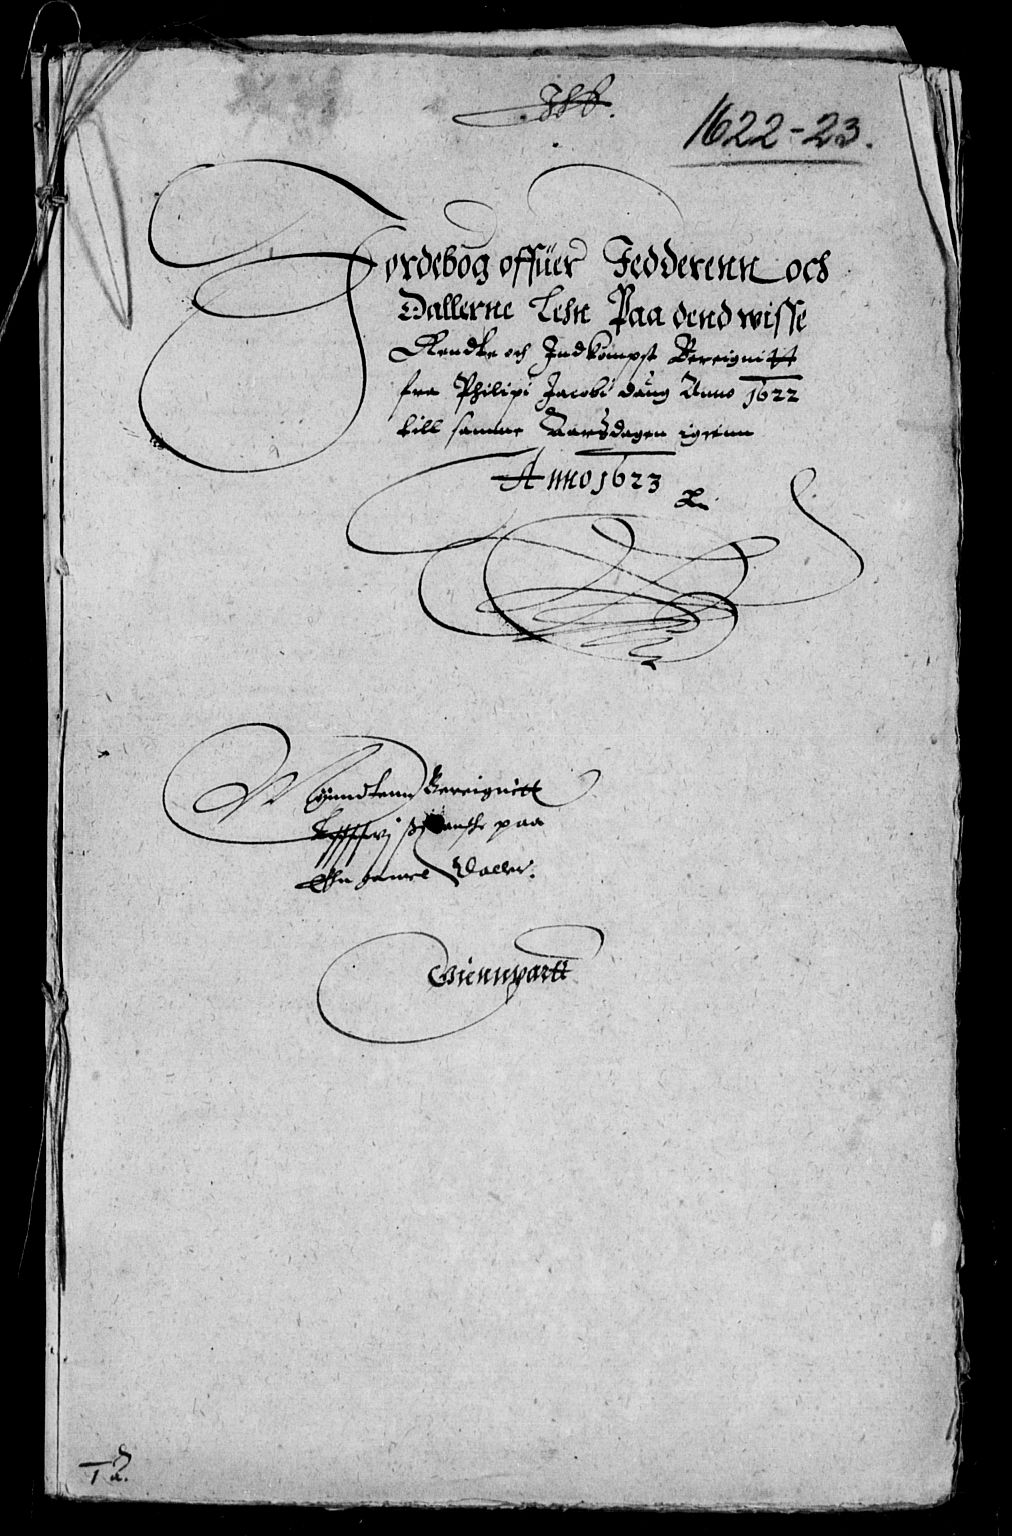 1622-23.
Jordebog offuer Jedderenn och
Dallerne Lehn Paa dend wisse
Rendte och Jndkompst Bereignitt
fra Philipi Jacobi daug Anno 1622
till samme Aarsdagen igienn
Anno 1623
Myndtenn Bereignitt
paa
En gammel Daller.
Giennpartt